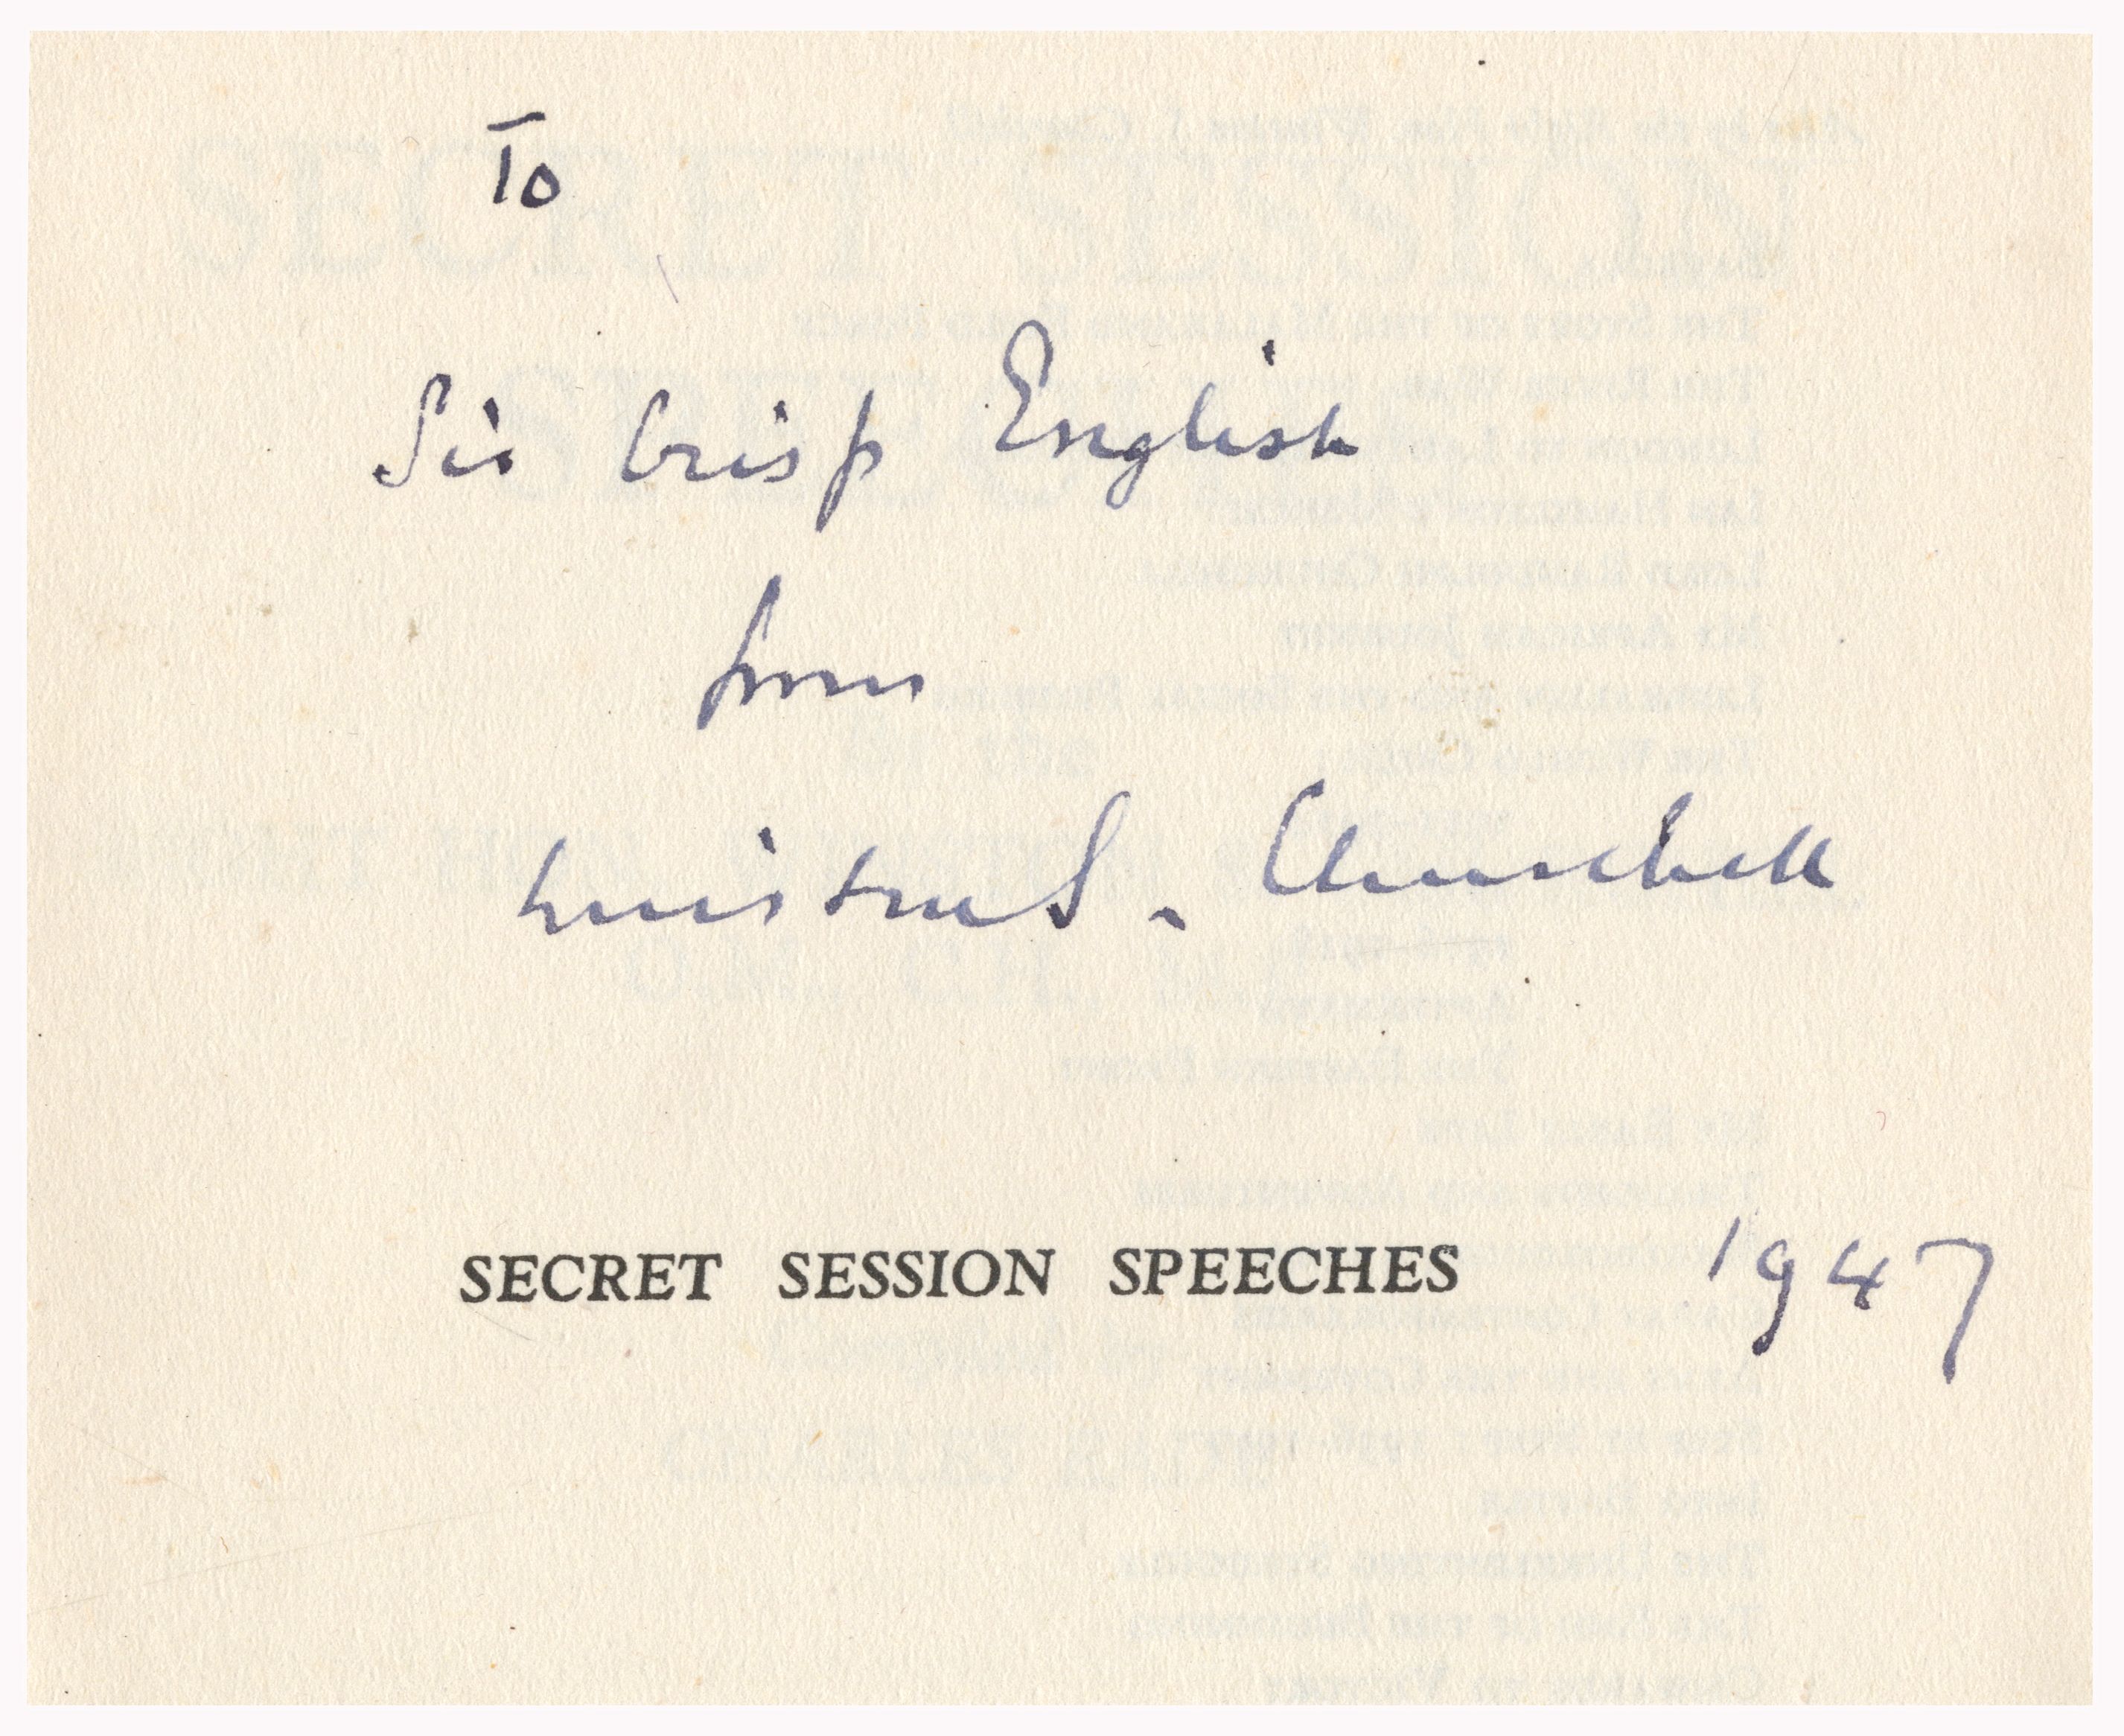 To
Sir Crisp English
from
Winston S. Churchill
SECRET SESSION SPEECHES 1947